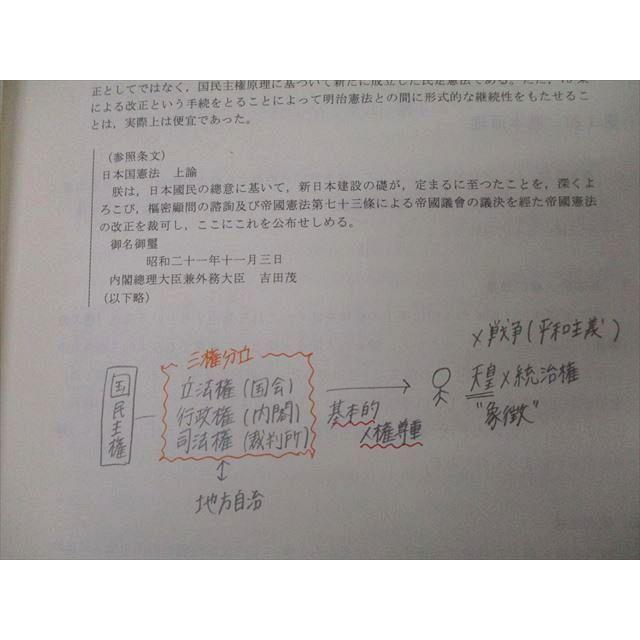 正としてではなく，国民主権原理に基づいて新たに成立した民定憲法である。ただ，
による改正という手続をとることによって明治憲法との間に形式的な継続性をもたせるこ
とは，実際上は便宜であった。
（参照条文）
日本国憲法　上諭
朕は，日本國民の總意に基いて，新日本建設の礎が，定まるに至つたことを，深くよ
ろこび，樞密顧問の諮詢及び帝國憲法第七十三條による帝國議會の議決を經た帝國憲法
の改正を裁可し，ここにこれを公布せしめる。
御名御璽
昭和二十一年十一月三日
内閣總理大臣兼外務大臣　吉田茂
（以下略）
×戦争(平和主義)
三権分立
国民主権
立法権(国会)
行政権(内閣)
司法権(裁判所)
基本的
人権尊重
天皇×統治権
"象徴"
地方自治